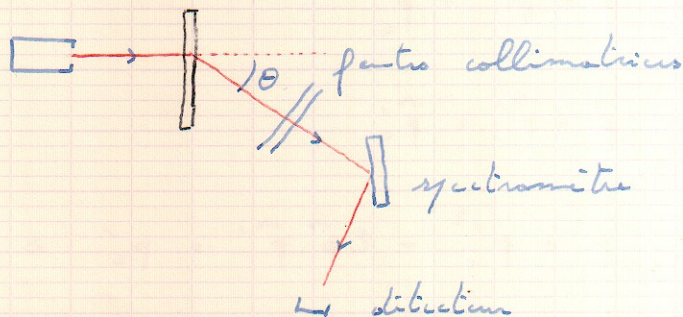 θ
fentes collimatrices
spectromètre
détecteur